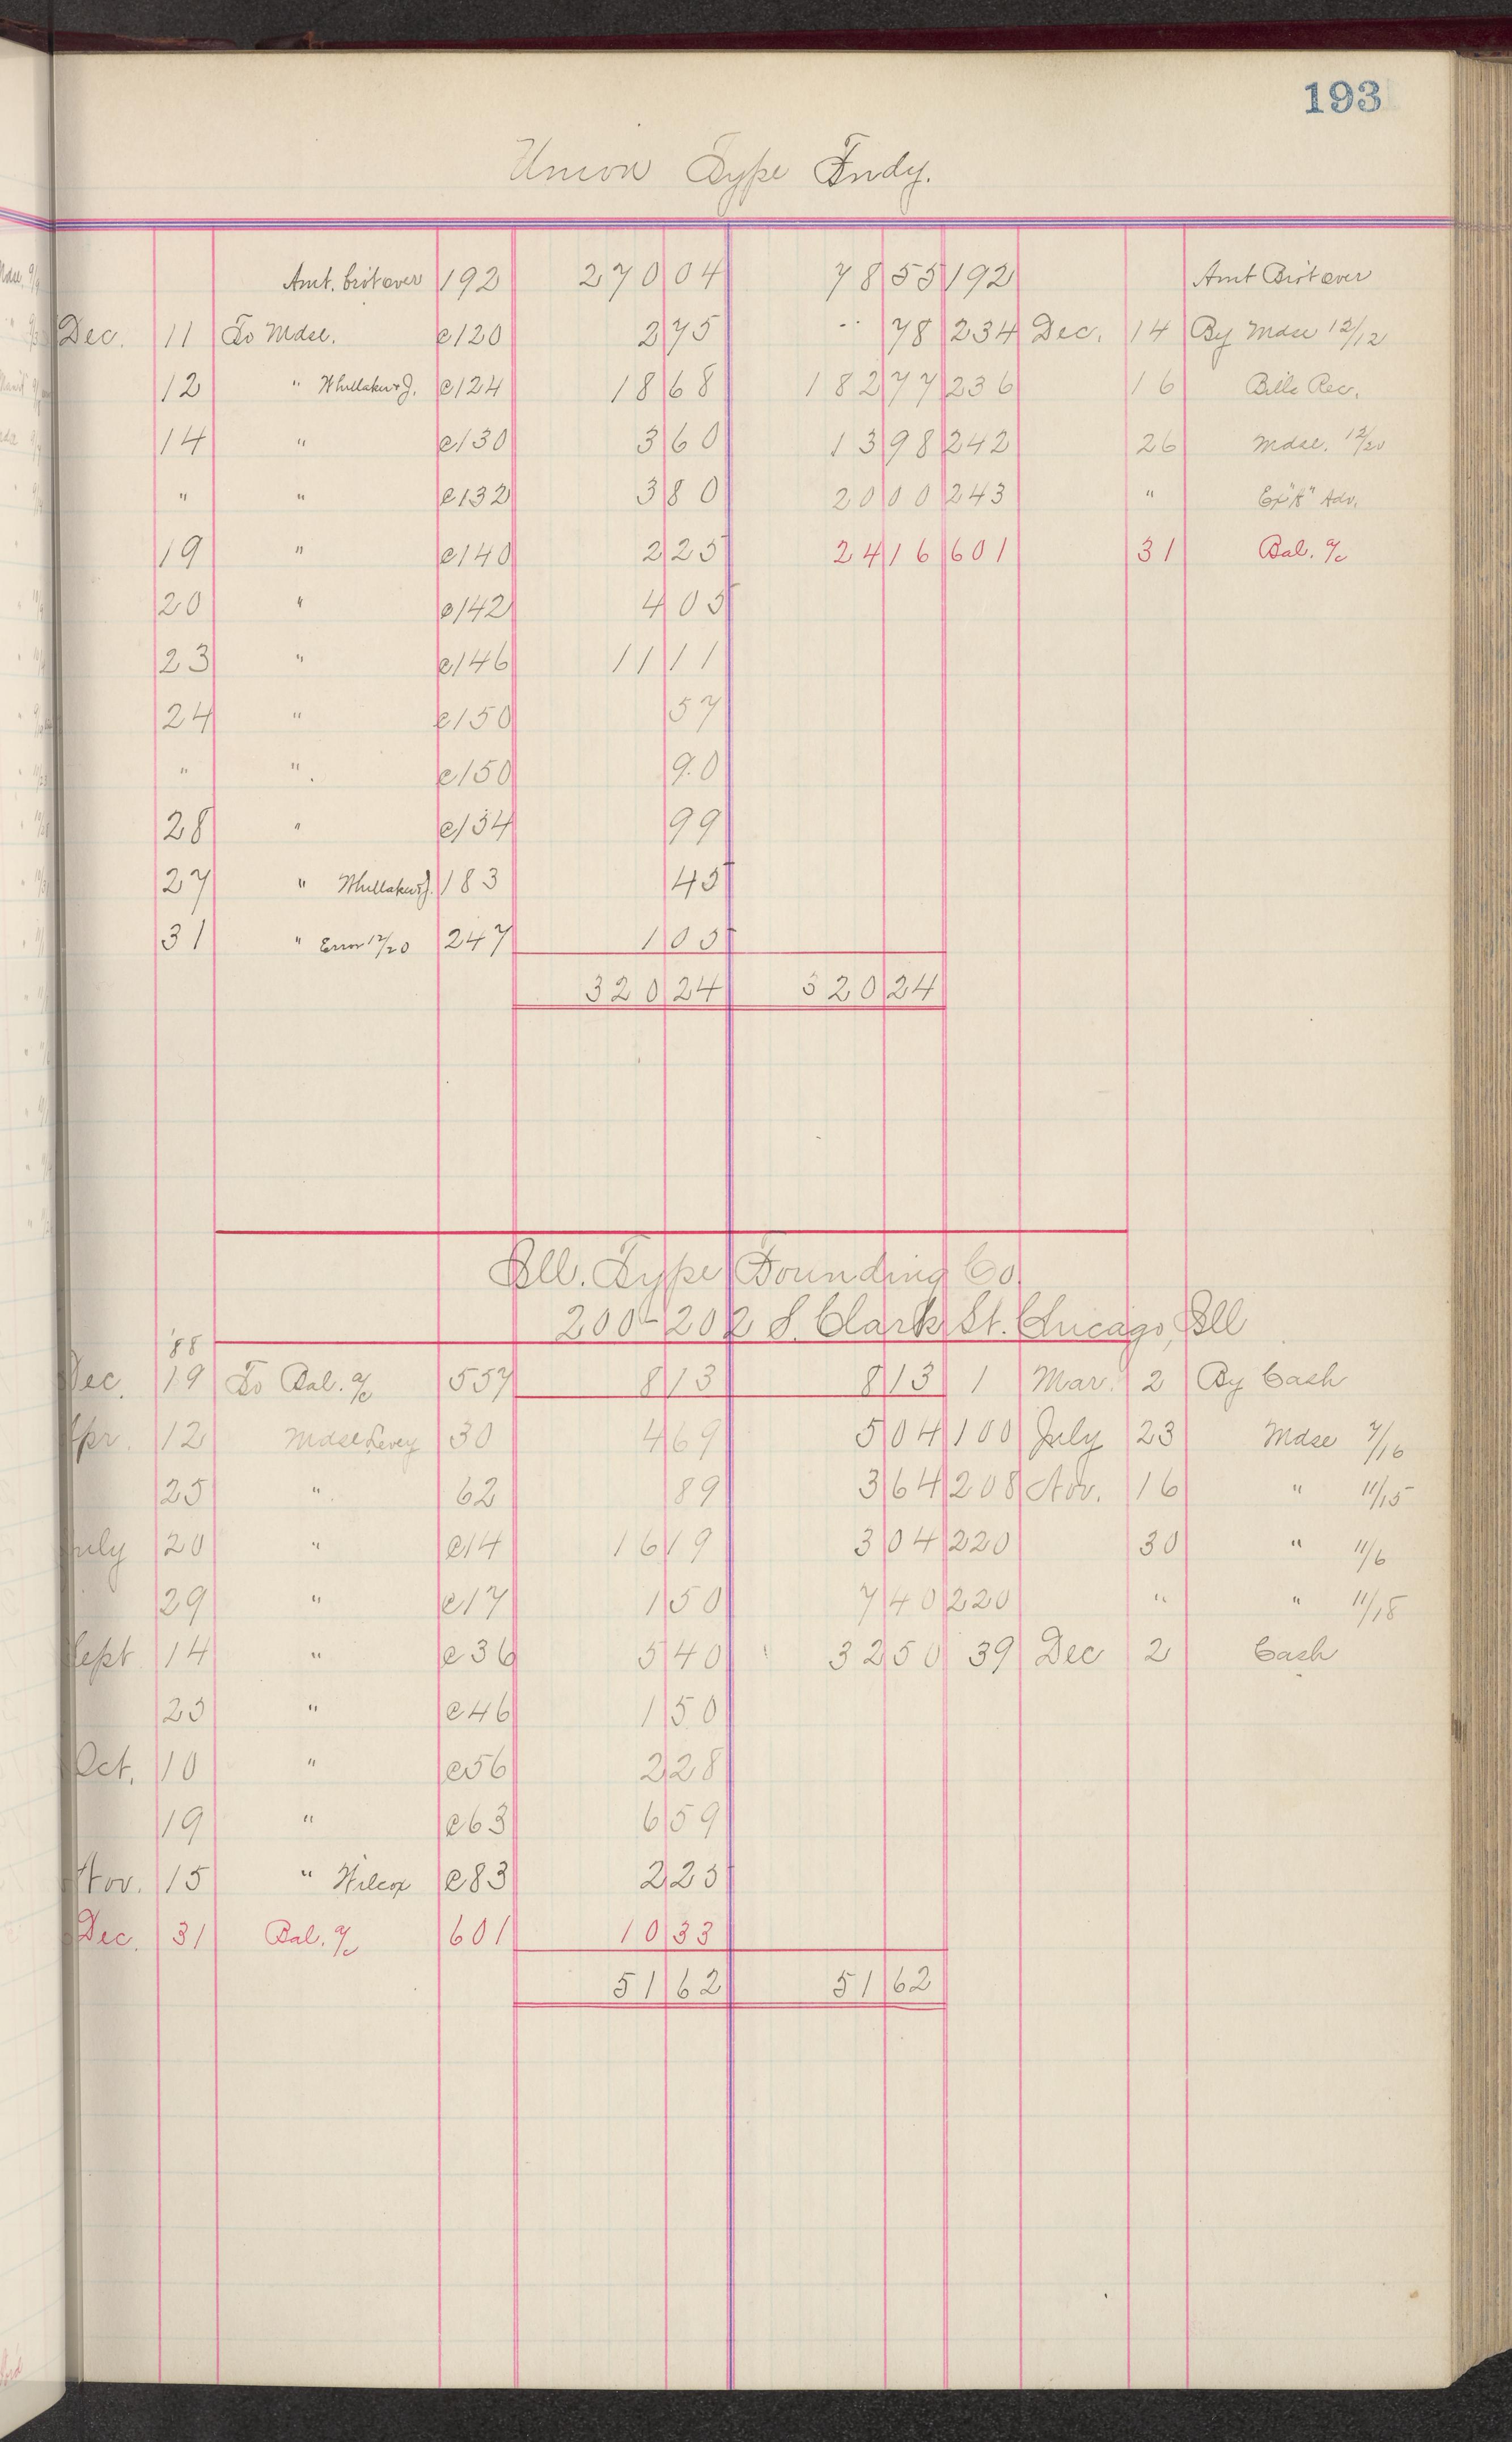 193
Union Type Fndy.
Amt. brôt over 192 270 04 78 55 192 Amt Brôt over
Dec. 11 To Mdse. c120 2 75 " 78 234 Dec. 14 By Mdse 12/12
12 " Whittaker J. c124 18 68 182 77 236 16 Bills Rec.
14 " c130 3 60 13 98 242 26 Mdse. 12/20
" " c132 3 80 20 00 243 " Ex "A" Adv.
19 " c140 2 25 24 16 601 31 Bal. a/c
20 " c142 4 05
23 " c146 11 11
24 " c150 57
" " c150 90
28 " c154 99
27 " Whittaker J. 183 45
31 " Error 12/20 247 1 05
320 24 320 24
Ill. Type Founding Co.
200-202 S. Clark St. Chicago, Ill
'88
Dec. 19 To Bal. a/c 557 8 13 8 13 1 Mar. 2 By Cash
Apr. 12 Mdse Levey 30 4 69 5 04 100 July 23 Mdse 7/16
25 " 62 89 3 64 208 Nov. 16 " 11/15
July 20 " c14 16 19 3 04 220 30 " 11/6
29 " c17 1 50 7 40 220 " " 11/18
Sept 14 " c36 5 40 32 50 39 Dec 2 Cash
25 " c46 1 50
Oct. 10 " c56 2 28
19 " c63 6 59
Nov. 15 " Wilcox c83 2 25
Dec. 31 Bal. a/c 601 10 33
51 62 51 62